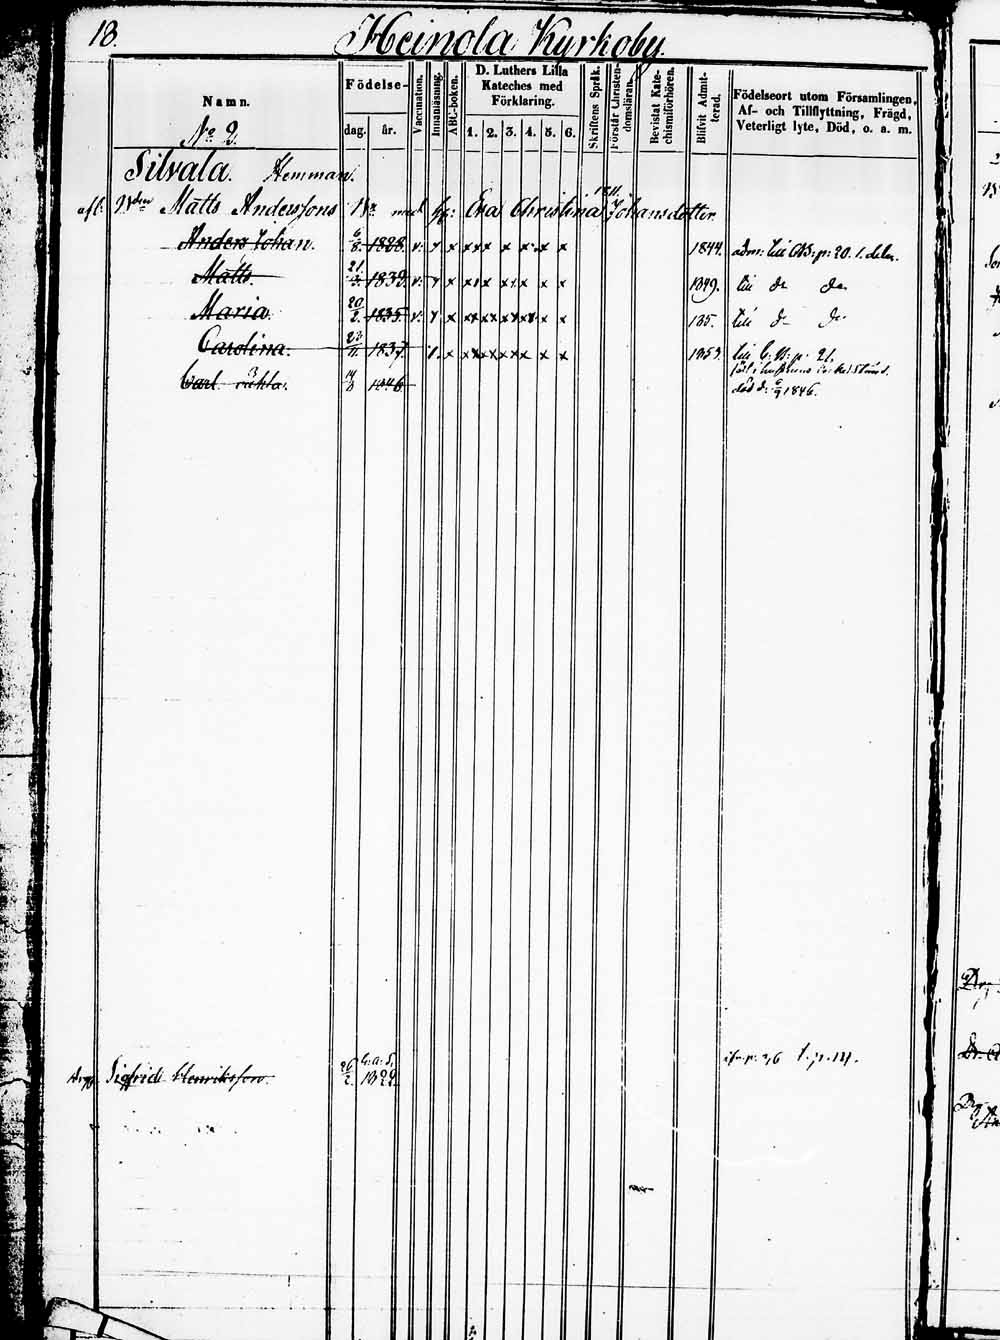 18.
Heinola Kyrkoby.
Namn.
No 2.
Födelse-
dag. år.
Vaccination.
Innanläsning.
ABC-boken.
D. Luthers Lilla
Kateches med
Förklaring.
1. 2. 3. 4. 5. 6.
Skriftens Språk.
Förstår Christen-
domsläran.
Bevistat Kate-
chismiförhören.
Blifvit Admit-
terad.
Födelseort utom Församlingen,
Af- och Tillflyttning, Frägd,
Veterligt lyte, Död, o. a. m.
Silvala. Hemman.
1811.
afl: Matts Anderssons med Eva Christina Johansdotter
Anders Johan. 6/8. 1828 v. x xxx x x x x x 1844. adm: till p: 20. 1. delen.
Matts. 21/3. 1832 v: x x x x x x x 1849. till do do
Maria. 20/2. 1835 v: x x x x x x x 135. till do do
Carolina. 23/11. 1837 x x x x x x x 1853. till p. 21.
Carl 14/3 1846
död d. 6/9 1846.
Sigfrid Henriksson. 26/2. 1822